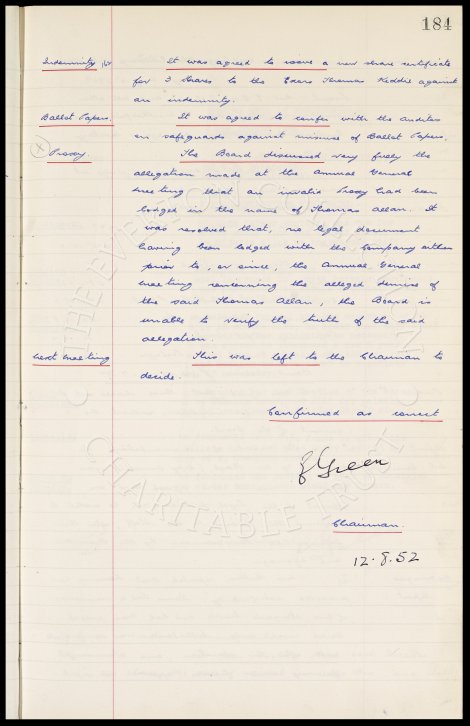 184
Indemnity
It was agreed to issue a new share certificate
for 3 shares to the Exors Thomas Kiddie against
an indemnity.
Ballot Papers.
It was agreed to confer with the auditor
on safeguards against misuse of Ballot Papers.
Proxy.
The Board discussed very fully the
allegation made at the Annual General
meeting that an invalid Proxy had been
lodged in the name of Thomas Allan. It
was resolved that, no legal document
having been lodged with the Company either
prior to, or since, the Annual General
meeting concerning the alleged demise of
the said Thomas Allan, the Board is
unable to verify the truth of the said
allegation.
Next meeting
This was left to the Chairman to
decide.
Confirmed as correct
E Green
Chairman.
12.8.52
THE EVERTON COLLECTION
CHARITABLE TRUST